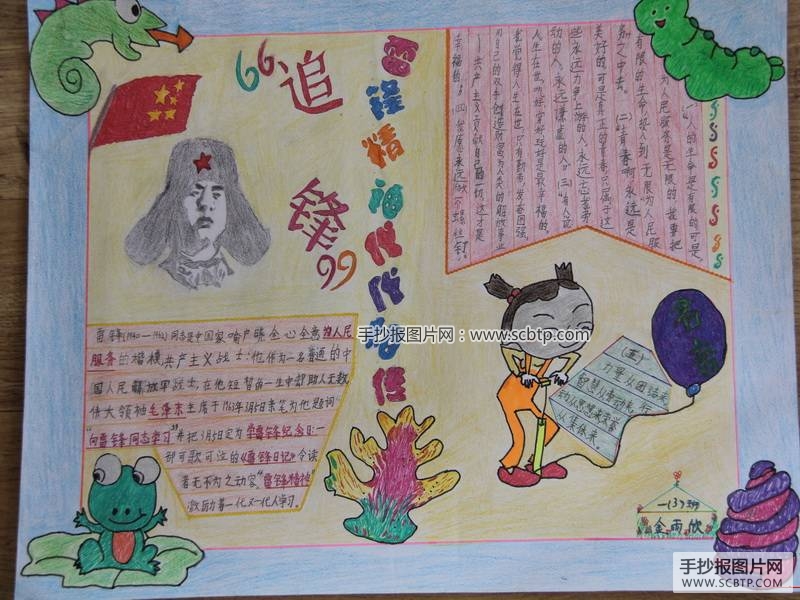 “追
锋”
雷锋精神代代相传
(一)人的生命是有限的,可是,
为人民服务是无限的,我要把
有限的生命,投入到无限为人民服
务之中去。(二)青春啊,永远是
美好的,可是真正的青春,只属于这
些永远力争上游的人,永远忘我劳
动的人,永远谦虚的人。(三)有人说
人生在世,吃好穿好玩好是最幸福的。
我觉得人生在世,只有勤劳,发奋图强,
用自己的双手创造财富,为人类的解放事业
——共产主义贡献自己的一切,这才是
幸福的。(四)我愿永远做一个螺丝钉。
雷锋(1940—1962)同志是中国家喻户晓全心全意为人民
服务的楷模,共产主义战士;他作为一名普通的中
国人民解放军战士,在他短暂的一生中却助人无数,
伟大领袖毛泽东主席于1963年3月5日亲笔为他题词
“向雷锋同志学习”并把3月5日定为学雷锋纪念日;一
部可歌可泣的《雷锋日记》令读
者无不为之动容“雷锋精神”
激励着一代又一代人学习。
(五)
力量从团结来,
智慧从劳动来,行
动从思想来,荣誉
从集体来
一(3)班
金雨欣
手抄报图片网:www.scbtp.com
手抄报图片网
WWW.SCBTP.COM